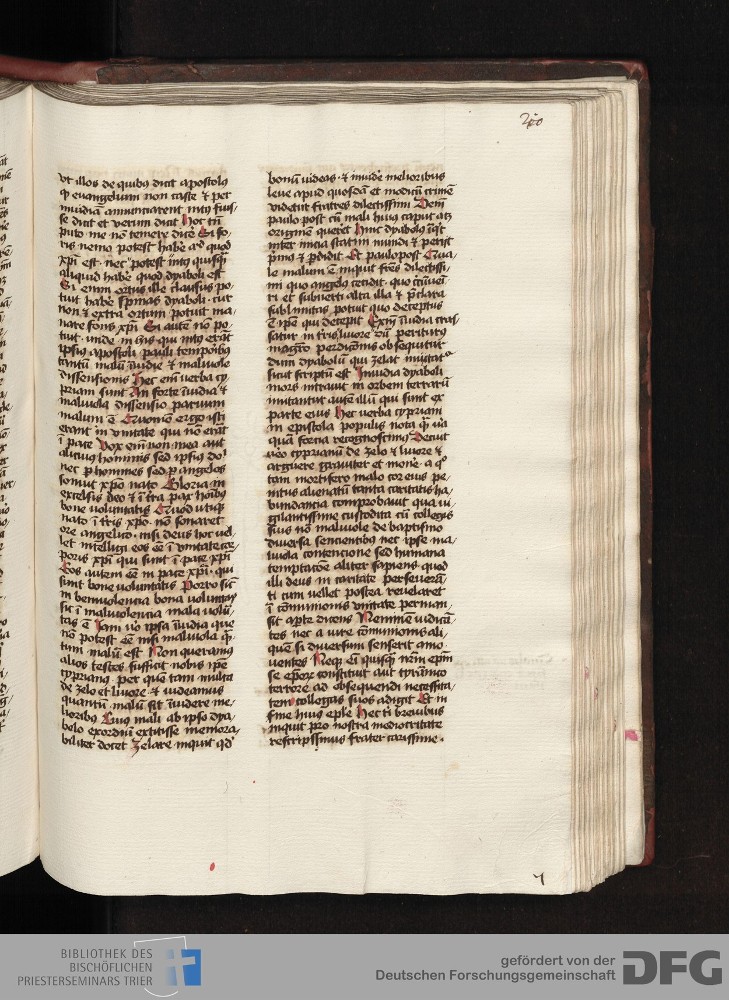 200
vt illos de quibꝰ dicit apostolꝰ
ꝙ euangelium non caste ⁊ per
inuidiā annunciarent intꝰ fuis-
se dicit et verum dicit Hoc tn̄
puto me nō temere dicē Si fo-
ris nemo potest habē aliquod
xp̄i est nec potest intꝰ quisq̄
aliquid habē quod dyaboli est
Si enim ortus ille clausus po-
tuit habē spinas dyaboli cur
non ⁊ extra ortum potuit ma-
nare fons xp̄i Si autē nō po-
tuit vnde in his qui intꝰ erāt
ipsiꝰ apostoli pauli temporibꝰ
tantū malū īuidie ⁊ maliuole
dissensionis Hec em̄ verba cy-
priani sunt An forte īuidia ⁊
maliuola dissensio paruum
malum ē Quomō ergo isti
erant in vnitate qui nō erāt
ī pace Vox em̄ non mea aut
alicuiꝰ hominis sed ipsiꝰ do
nec ꝑ homines sed ꝑ angelos
sonuit xp̄o nato Gloria in
excelsis deo ⁊ ī tra pax hoībꝰ
bone voluntatis Quod vtiqꝫ
nato ī tris xp̄o nō sonaret
ore angelico nisi deus hoc vel-
let intelligi eos eē ī vnitate cor-
poris xp̄i qui sunt ī pace xp̄i
Eos autem eē in pace xp̄i qui
sunt bone voluntatis Porro sic̄
in beniuolencia bona voluntas
sic ī maliuolencia mala volū-
tas ē Iam vo ipsa īuidia que
nō potest eē nisi maliuola q̄-
tum malū est Non queramꝰ
alios testes sufficit nobis ip̄e
cyprianꝰ per quē tam multa
de zelo et liuore ⁊ videamus
quantū malū sit īuidere me-
lioribꝰ Cuiꝰ mali ab ipso dya-
bolo exordiū extitisse memora-
biliter docet Zelare inquit qd
bonū videas ⁊ inuidē melioribus
leue apud quosdā et modicū crimē
videtur fratres dilectissimi Dein̄
paulo post cū mali huiꝰ caput atꝫ
originē queret Hinc dyabolꝰ īq̄t
inter inicia statim mundi ⁊ periit
p̄mꝰ ⁊ ꝑdidit Et paulo post Qua-
le malum ē inquit fr̄es dilectissi-
mi quo angelꝰ cecidit quo circūueni-
ri et subuerti alta illa ⁊ p̄clara
sublimitas potuit quo deceptus
ē ip̄e qui decepit Exin̄ īuidia cras-
satur in tris liuore dū periturꝰ
magr̄o perdicionis obsequitur
dum dyabolū qui zelat imitat᷒
sicut scriptū est Inuidia dyaboli
mors intrauit in orbem terrarū
imitantur autē illū qui sunt ex
parte eius Hec verba cypriani
in epistola populis nota
quā forcia recognoscimꝰ Decuit
cyprianū de zelo ⁊ liuore ⁊
arguere grauiter et monē a qͦ
tam mortifero malo cor eius pe-
nitus alienatū tanta caritatis ha-
bundancia comprobauit qua vi-
gilantissime custodita cū collegis
suis nō maliuole de baptismo
diuersa sencientibꝰ nec ip̄se ma-
liuola contencione sed humana
temptacōe aliter sapiens quod
illi deus in caritate perseuerā-
ti cum vellet postea reuelaret
ī cōmunionis vnitate perman-
sit apte dicens Neminē vidicā-
tes nec a iure cōmunionis ali-
quē si diuersum senserit amo-
uentes Neqꝫ em̄ quisq̄ nr̄m ep̄m
se epōꝝ constituit aut tyrānico
terrore ad obsequendi necessita-
tem collegas suos adigit Et in
fine huiꝰ ep̄le Hec t̄ breuibus
inquit pro nostra mediocritate
rescripsimus frater carissime
BIBLIOTHEK DES
BISCHÖFLICHEN
PRIESTERSEMINARS TRIER
gefördert von der
Deutschen Forschungsgemeinschaft
DFG